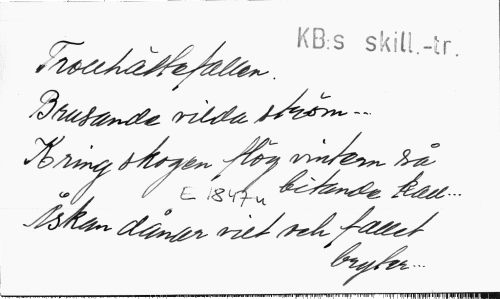 KB:s skill.-tr.
Trollhättefallen.
Brusande vilda ström...
Kring skogen flög vintern så
bitande kall...
E 1847u
Åskan dånar vilt och fallet
bryter...